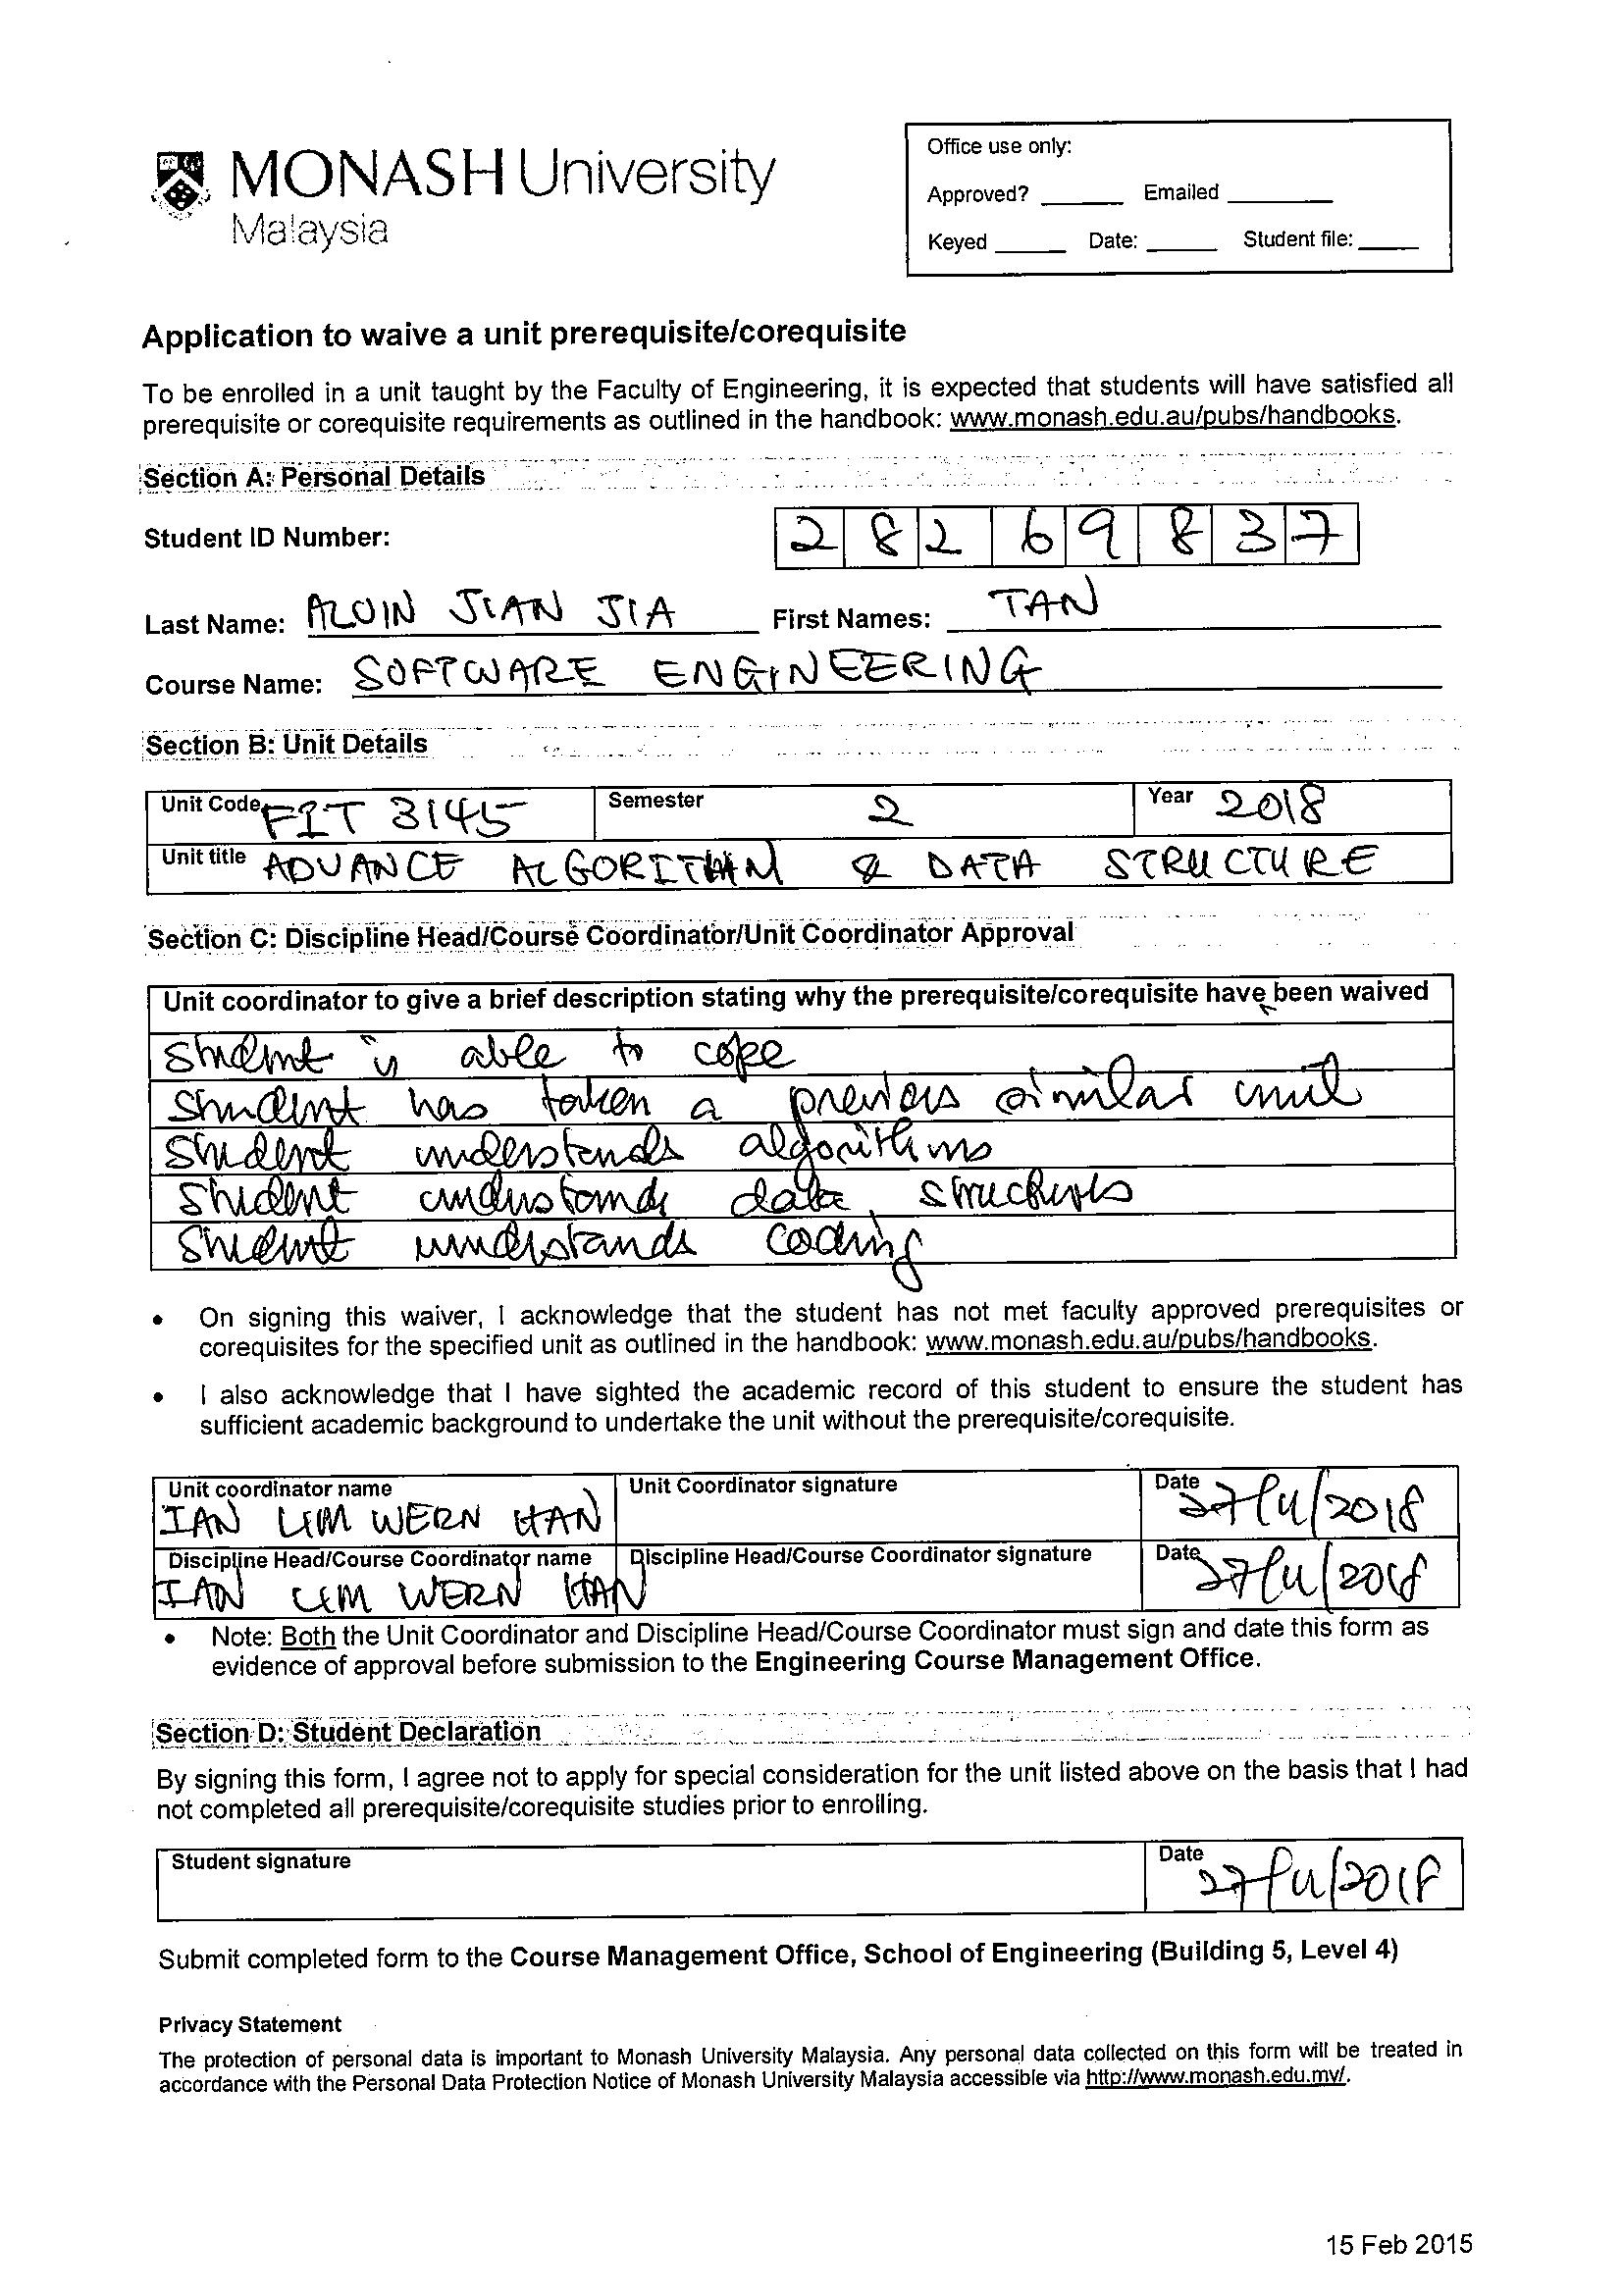 MONASH University
Malaysia
Office use only:
Approved? ______ Emailed ______
Keyed ______ Date: ______ Student file: ______
Application to waive a unit prerequisite/corequisite
To be enrolled in a unit taught by the Faculty of Engineering, it is expected that students will have satisfied all
prerequisite or corequisite requirements as outlined in the handbook: www.monash.edu.au/pubs/handbooks.
Section A: Personal Details
Student ID Number: 2 8 2 6 9 8 3 7
Last Name: ALVIN JIAN JIA First Names: TAN
Course Name: SOFTWARE ENGINEERING
Section B: Unit Details
Unit Code FIT 3145 Semester 2 Year 2018
Unit title ADVANCE ALGORITHM & DATA STRUCTURE
Section C: Discipline Head/Course Coordinator/Unit Coordinator Approval
Unit coordinator to give a brief description stating why the prerequisite/corequisite have been waived
Student is able to cope
Student has taken a previous similar unit
Student understands algorithms
Student understands data structures
Student understands coding
• On signing this waiver, I acknowledge that the student has not met faculty approved prerequisites or
corequisites for the specified unit as outlined in the handbook: www.monash.edu.au/pubs/handbooks.
• I also acknowledge that I have sighted the academic record of this student to ensure the student has
sufficient academic background to undertake the unit without the prerequisite/corequisite.
Unit coordinator name Unit Coordinator signature Date
IAN LIM WERN HAN 27/11/2018
Discipline Head/Course Coordinator name Discipline Head/Course Coordinator signature Date
IAN LIM WERN HAN 27/11/2018
• Note: Both the Unit Coordinator and Discipline Head/Course Coordinator must sign and date this form as
evidence of approval before submission to the Engineering Course Management Office.
Section D: Student Declaration
By signing this form, I agree not to apply for special consideration for the unit listed above on the basis that I had
not completed all prerequisite/corequisite studies prior to enrolling.
Student signature Date 27/11/2018
Submit completed form to the Course Management Office, School of Engineering (Building 5, Level 4)
Privacy Statement
The protection of personal data is important to Monash University Malaysia. Any personal data collected on this form will be treated in
accordance with the Personal Data Protection Notice of Monash University Malaysia accessible via http://www.monash.edu.my/.
15 Feb 2015